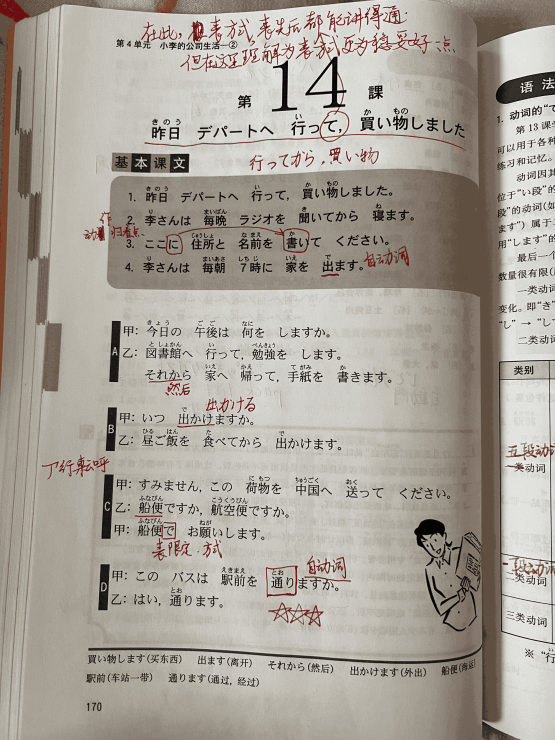 在此，表方式，表先后都能讲得通
第4単元 小李的公司生活—②
但在这里理解为表方式更为稳妥好一点
第 14 課
昨日 デパートへ 行って，買い物しました
基本课文
行ってから，買い物
1. 昨日 デパートへ 行って，買い物しました。
2. 李さんは 毎晩 ラジオを 聞いてから 寝ます。
动作归着点
3. ここに 住所と 名前を 書いて ください。
4. 李さんは 毎朝 7時に 家を 出ます。自动词
A
甲：今日の 午後は 何を しますか。
乙：図書館へ 行って，勉強を します。
それから 家へ 帰って，手紙を 書きます。
然后
出かける
B
甲：いつ 出かけますか。
乙：昼ご飯を 食べてから 出かけます。
C
甲：すみません，この 荷物を 中国へ 送って ください。
乙：船便ですか，航空便ですか。
甲：船便で お願いします。
表限定 方式
自动词
D
甲：この バスは 駅前を 通りますか。
乙：はい，通ります。
買い物します(买东西) 出ます(离开) それから(然后) 出かけます(外出) 船便(海运)
駅前(车站一带) 通ります(通过，经过)
170
语法
1. 动词的"て
第13课学
可以用于各种
练习和记忆。
动词因其
位于"い段"的
段"的动词(如
ます"）属于二
用"します"的
最后一个
数量很有限(
一类动词
变化。即"き"
"し" → "し
二类动词
类别
五段动词
一类动词
一段动词
二类动词
三类动词
※ "行